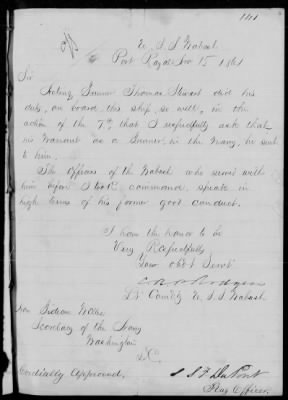 U. S. S. Wabash
Port Royal Nov 15 1861
Sir
Acting Gunner Thomas Stewart did his
duty, on board this ship so well, in the
action of the 7th, that I respectfully ask that
his Warrant as a Gunner, in the Navy, be sent
to him.
The officers of the Wabash who served with
him before I took command, speak in
high terms of his former good conduct.
I have the honor to be
Very Respectfully
Your obdt Servt
C R P Rodgers
Comdg U. S. S Wabash
Hon Gideon Welles
Secretary of the Navy
Washington
D.C.
Cordially Approved,
S F DuPont
Flag Officer